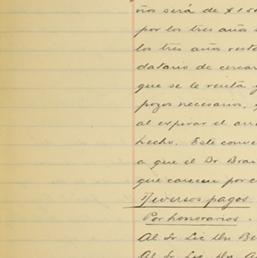 ños será de $150
por los tres años
los tres años resta
datario de cercar
que se le renta y
pozos necesarios,
al expirar el arr
hecho. Este conve
a que el Dr Bran
que carecen por c
Diversos pagos
Por honorarios.
Al Sr Lic Dn Be
Al Sr Lic Dn